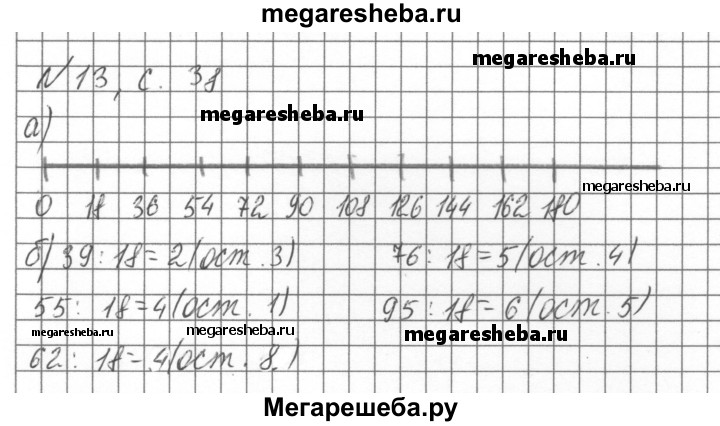 megaresheba.ru
megaresheba.ru
№ 13, с. 38
megaresheba.ru
а)
megaresheba.ru
0 18 36 54 72 90 108 126 144 162 180
б) 39 : 18 = 2 (ост. 3) 76 : 18 = 5 (ост. 4)
55 : 18 = 4 (ост. 1) 95 : 18 = 6 (ост. 5)
megaresheba.ru megaresheba.ru megaresheba.ru
62 : 18 = 4 (ост. 8.)
Мегарешеба.ру